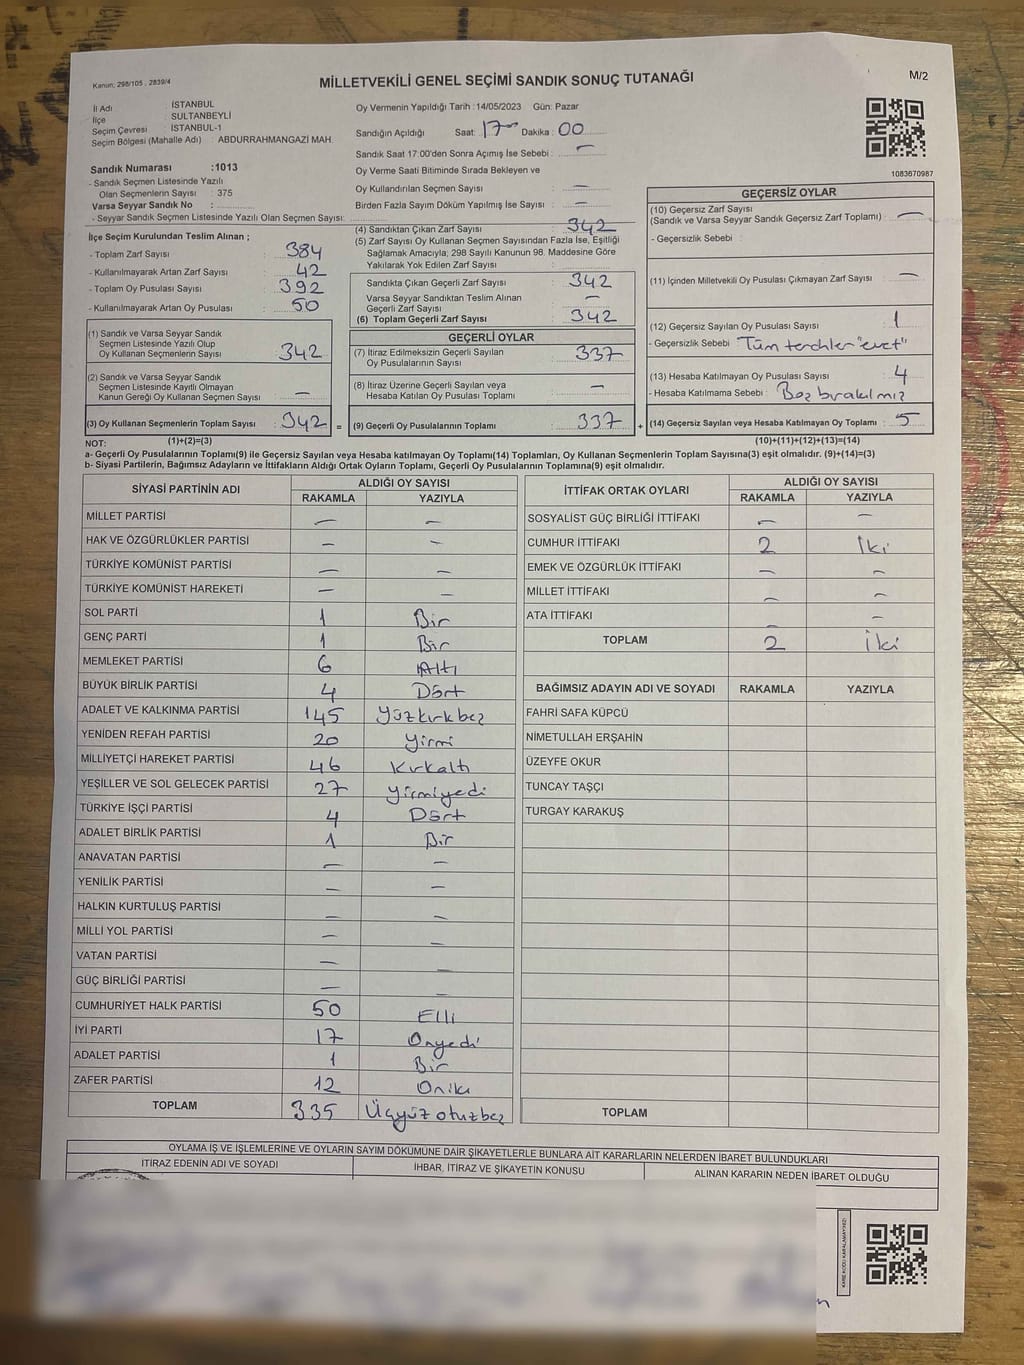 Kanun; 298/105 , 2839/4
MİLLETVEKİLİ GENEL SEÇİMİ SANDIK SONUÇ TUTANAĞI
M/2
İl Adı İSTANBUL
İlçe SULTANBEYLİ
Seçim Çevresi İSTANBUL-1
Seçim Bölgesi (Mahalle Adı) : ABDURRAHMANGAZİ MAH.
Oy Vermenin Yapıldığı Tarih : 14/05/2023 Gün: Pazar
Sandığın Açıldığı Saat: 17 Dakika : 00
Sandık Saat 17:00'den Sonra Açımış İse Sebebi : —
Oy Verme Saati Bitiminde Sırada Bekleyen ve
Oy Kullandırılan Seçmen Sayısı —
Birden Fazla Sayım Döküm Yapılmış İse Sayısı : —
1083670987
Sandık Numarası : 1013
- Sandık Seçmen Listesinde Yazılı
Olan Seçmenlerin Sayısı : 375
Varsa Seyyar Sandık No :
- Seyyar Sandık Seçmen Listesinde Yazılı Olan Seçmen Sayısı:
İlçe Seçim Kurulundan Teslim Alınan ;
- Toplam Zarf Sayısı : 384
- Kullanılmayarak Artan Zarf Sayısı : 42
- Toplam Oy Pusulası Sayısı : 392
- Kullanılmayarak Artan Oy Pusulası : 50
(1) Sandık ve Varsa Seyyar Sandık
Seçmen Listesinde Yazılı Olup
Oy Kullanan Seçmenlerin Sayısı : 342
(2) Sandık ve Varsa Seyyar Sandık
Seçmen Listesinde Kayıtlı Olmayan
Kanun Gereği Oy Kullanan Seçmen Sayısı : —
(3) Oy Kullanan Seçmenlerin Toplam Sayısı : 342 =
(4) Sandıktan Çıkan Zarf Sayısı : 342
(5) Zarf Sayısı Oy Kullanan Seçmen Sayısından Fazla İse, Eşitliği
Sağlamak Amacıyla; 298 Sayılı Kanunun 98. Maddesine Göre
Yakılarak Yok Edilen Zarf Sayısı :
Sandıkta Çıkan Geçerli Zarf Sayısı : 342
Varsa Seyyar Sandıktan Teslim Alınan
Geçerli Zarf Sayısı : —
(6) Toplam Geçerli Zarf Sayısı : 342
GEÇERLİ OYLAR
(7) İtiraz Edilmeksizin Geçerli Sayılan
Oy Pusulalarının Sayısı : 337
(8) İtiraz Üzerine Geçerli Sayılan veya
Hesaba Katılan Oy Pusulası Toplamı : —
(9) Geçerli Oy Pusulalarının Toplamı : 337 +
GEÇERSİZ OYLAR
(10) Geçersiz Zarf Sayısı
(Sandık ve Varsa Seyyar Sandık Geçersiz Zarf Toplamı) : —
- Geçersizlik Sebebi :
(11) İçinden Milletvekili Oy Pusulası Çıkmayan Zarf Sayısı : —
(12) Geçersiz Sayılan Oy Pusulası Sayısı : 1
- Geçersizlik Sebebi : Tüm terchler "evet"
(13) Hesaba Katılmayan Oy Pusulası Sayısı : 4
- Hesaba Katılmama Sebebi : Boş bırakılmış
(14) Geçersiz Sayılan veya Hesaba Katılmayan Oy Toplamı : 5
NOT: (1)+(2)=(3) (10)+(11)+(12)+(13)=(14)
a- Geçerli Oy Pusulalarının Toplamı(9) ile Geçersiz Sayılan veya Hesaba katılmayan Oy Toplamı(14) Toplamları, Oy Kullanan Seçmenlerin Toplam Sayısına(3) eşit olmalıdır. (9)+(14)=(3)
b- Siyasi Partilerin, Bağımsız Adayların ve İttifakların Aldığı Ortak Oyların Toplamı, Geçerli Oy Pusulalarının Toplamına(9) eşit olmalıdır.
SİYASİ PARTİNİN ADI ALDIĞI OY SAYISI
RAKAMLA YAZIYLA
MİLLET PARTİSİ — —
HAK VE ÖZGÜRLÜKLER PARTİSİ — —
TÜRKİYE KOMÜNİST PARTİSİ — —
TÜRKİYE KOMÜNİST HAREKETİ — —
SOL PARTİ 1 Bir
GENÇ PARTİ 1 Bir
MEMLEKET PARTİSİ 6 Altı
BÜYÜK BİRLİK PARTİSİ 4 Dört
ADALET VE KALKINMA PARTİSİ 145 Yüzkırkbeş
YENİDEN REFAH PARTİSİ 20 Yirmi
MİLLİYETÇİ HAREKET PARTİSİ 46 Kırkaltı
YEŞİLLER VE SOL GELECEK PARTİSİ 27 Yirmiyedi
TÜRKİYE İŞÇİ PARTİSİ 4 Dört
ADALET BİRLİK PARTİSİ 1 Bir
ANAVATAN PARTİSİ — —
YENİLİK PARTİSİ — —
HALKIN KURTULUŞ PARTİSİ — —
MİLLİ YOL PARTİSİ — —
VATAN PARTİSİ — —
GÜÇ BİRLİĞİ PARTİSİ — —
CUMHURİYET HALK PARTİSİ 50 Elli
İYİ PARTİ 17 Onyedi
ADALET PARTİSİ 1 Bir
ZAFER PARTİSİ 12 Oniki
TOPLAM 335 Üçyüzotuzbeş
İTTİFAK ORTAK OYLARI ALDIĞI OY SAYISI
RAKAMLA YAZIYLA
SOSYALİST GÜÇ BİRLİĞİ İTTİFAKI — —
CUMHUR İTTİFAKI 2 İki
EMEK VE ÖZGÜRLÜK İTTİFAKI — —
MİLLET İTTİFAKI — —
ATA İTTİFAKI — —
TOPLAM 2 İki
BAĞIMSIZ ADAYIN ADI VE SOYADI RAKAMLA YAZIYLA
FAHRİ SAFA KÜPCÜ
NİMETULLAH ERŞAHİN
ÜZEYFE OKUR
TUNCAY TAŞÇI
TURGAY KARAKUŞ
TOPLAM
OYLAMA İŞ VE İŞLEMLERİNE VE OYLARIN SAYIM DÖKÜMÜNE DAİR ŞİKAYETLERLE BUNLARA AİT KARARLARIN NELERDEN İBARET BULUNDUKLARI
İTİRAZ EDENİN ADI VE SOYADI İHBAR, İTİRAZ VE ŞİKAYETİN KONUSU ALINAN KARARIN NEDEN İBARET OLDUĞU
KARE KODU KARALAMAYINIZ!